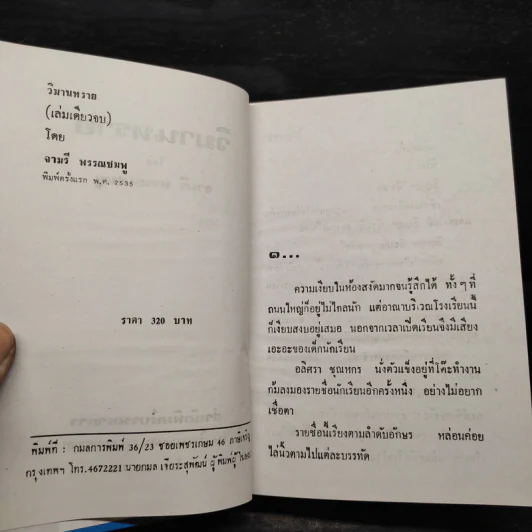 วิมานทราย
(เล่มเดียวจบ)
โดย
จามรี พรรณชมพู
พิมพ์ครั้งแรก พ.ศ. 2535
ราคา 320 บาท
พิมพ์ที่ : กมลการพิมพ์ 36/23 ซอยเพชรเกษม 46 ภาษีเจริญ
กรุงเทพฯ โทร.4672221 นายกมล เจียระสุพัฒน์ ผู้พิมพ์ผู้
๑...
ความเงียบในห้องสงัดมากจนรู้สึกได้ ทั้งๆที่
ถนนใหญ่ก็อยู่ไม่ไกลนัก แต่อาณาบริเวณโรงเรียนนี้
ก็เงียบสงบอยู่เสมอ นอกจากเวลาเปิดเรียนจึงมีเสียง
เอะอะของเด็กนักเรียน
อลิศรา ชุณหกร นั่งตัวแข็งอยู่ที่โต๊ะทำงาน
ก้มลงมองรายชื่อนักเรียนอีกครั้งหนึ่ง อย่างไม่อยาก
เชื่อตา
รายชื่อนี้เรียงตามลำดับอักษร หล่อนค่อย
ไล่นิ้วตามไปแต่ละบรรทัด